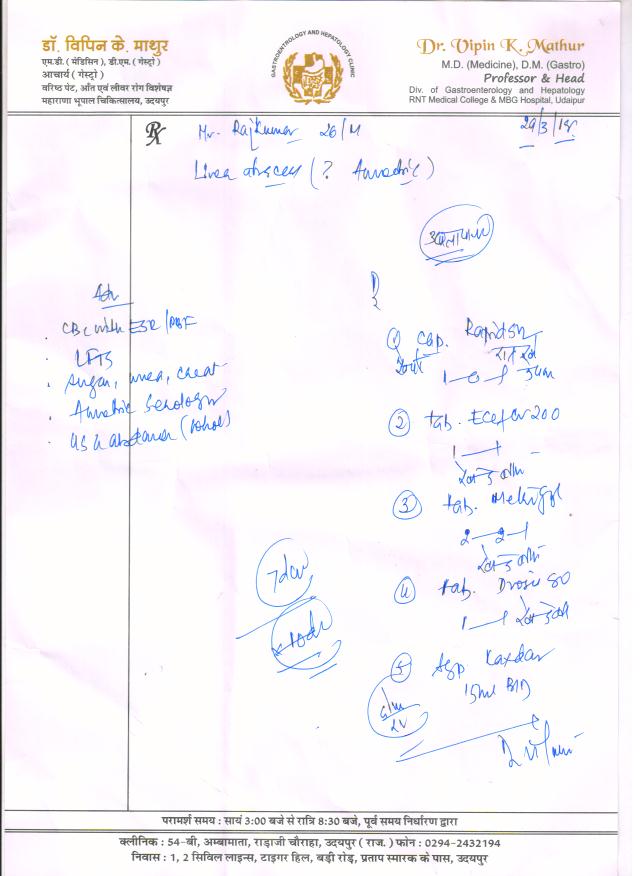 डॉ. विपिन के. माथुर
एम.डी. (मेडिसिन), डी.एम. (गेस्ट्रो)
आचार्य (गेस्ट्रो)
वरिष्ठ पेट, आँत एवं लीवर रोग विशेषज्ञ
महाराणा भूपाल चिकित्सालय, उदयपुर
GASTROENTROLOGY AND HEPATOLOGY CLINIC
Dr. Vipin K. Mathur
M.D. (Medicine), D.M. (Gastro)
Professor & Head
Div. of Gastroenterology and Hepatology
RNT Medical College & MBG Hospital, Udaipur
Rx Mr. Rajkumar 26/M 29/3/18
Liver abscess (? Amoebic)
Adv
CBC with ESR/PBF
LFTS
Sugar, urea, creat
Amoebic Serology
USG abdomen (whole)
R
① Cap.
1-0-1
② tab. 200
1-1
③ tab. Metrogyl
2-2-1
④ tab. 80
1-1
⑤ Syp
15ml BID
7 day
x 10 day
परामर्श समय : सायं 3:00 बजे से रात्रि 8:30 बजे, पूर्व समय निर्धारण द्वारा
क्लीनिक : 54-बी, अम्बामाता, राड़ाजी चौराहा, उदयपुर ( राज. ) फोन : 0294-2432194
निवास : 1, 2 सिविल लाइन्स, टाइगर हिल, बड़ी रोड़, प्रताप स्मारक के पास, उदयपुर